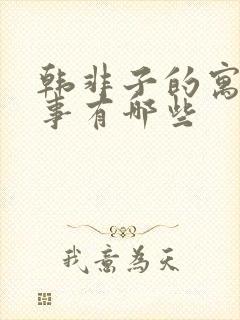 韩非子的寓
事有哪些
我意為天